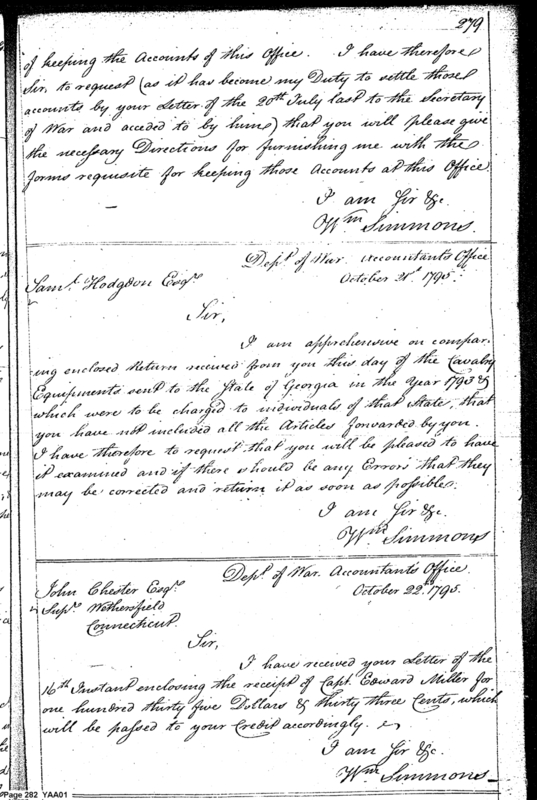 279
of keeping the Accounts of this Office. I have therefore
Sir, to request (as it has become my Duty to settle those
accounts by your Letter of the 20th July last to the Secretary
of War and acceded to by him) that you will please give
the necessary Directions for furnishing me with the
forms requisite for keeping those Accounts at this Office.
I am Sir &c.
Wm Simmons.
Dept of War. Accountants Office
October 21st 1795.
Saml Hodgdon Esqr
Sir,
I am apprehensive on compar-
ing enclosed Return received from you this day of the Cavalry
Equipments sent to the State of Georgia in the Year 1793 &
which were to be charged to individuals of that State, that
you have not included all the Articles forwarded by you.
I have therefore to request that you will be pleased to have
it examined and if there should be any Errors that they
may be corrected and return it as soon as possible.
I am Sir &c.
Wm Simmons
Dept of War. Accountants Office.
October 22d 1795.
John Chester Esqr
Supr Wethersfield
Connecticut
Sir,
I have received your Letter of the
16th Instant enclosing the receipt of Capt. Edward Miller for
one hundred thirty five Dollars & thirty three Cents, which
will be passed to your Credit accordingly.
I am Sir &c.
Wm Simmons
Page 282 YAA01